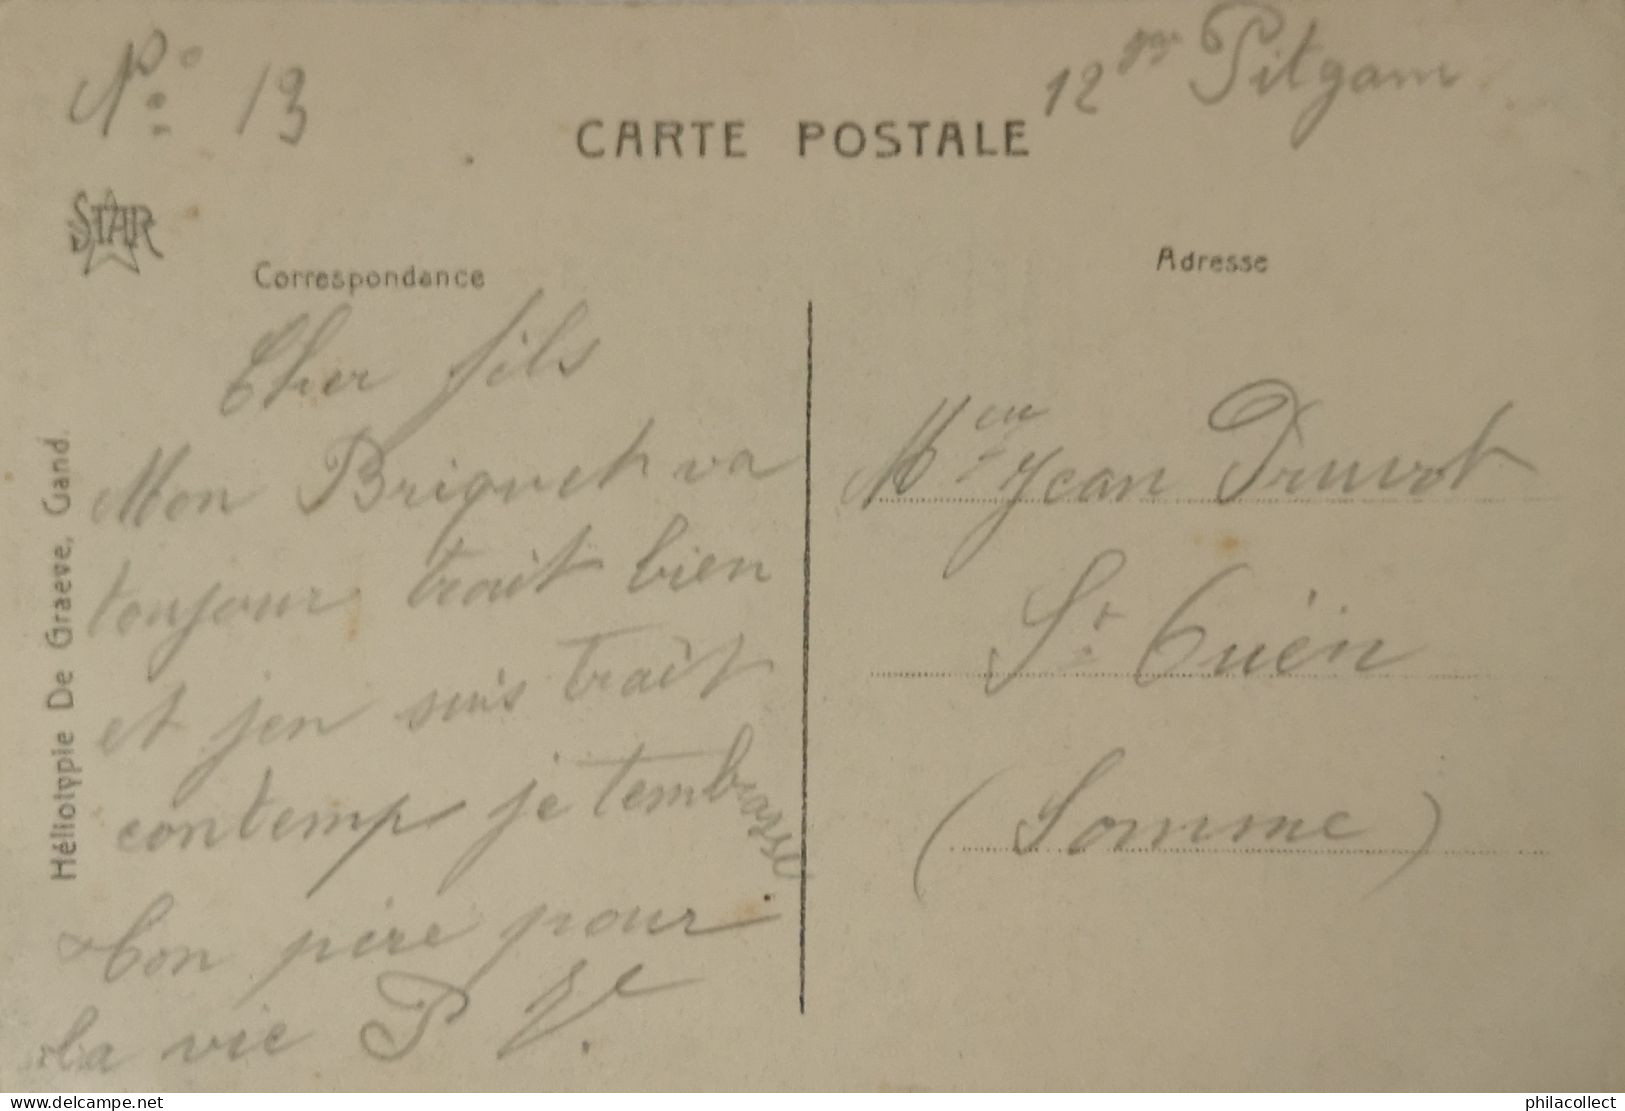 N° 13
12 Pitgam
CARTE POSTALE
STAR
Correspondance
Adresse
Cher fils
Mon Briquet va
toujour trait bien
et jen suis trait
contemp je tembrasse
ton père pour
la vie P V.
Jean Druvot
St Ouën
(Somme)
Héliotypie De Graeve, Gand.
delcampe.net
philacollect